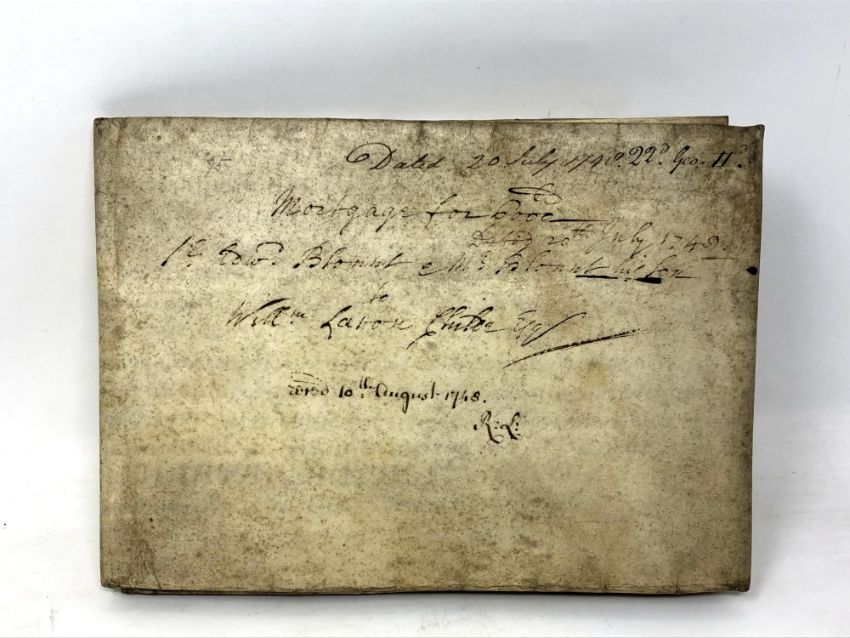 Dated 20 July 1748. 22d. Geo. IId.
Mortgage for 6000
Dated 20th July 1748
Sr Edwd. Blount & Mr Blount his Son
to
Willm Esqr
10th August 1748.
R: L: